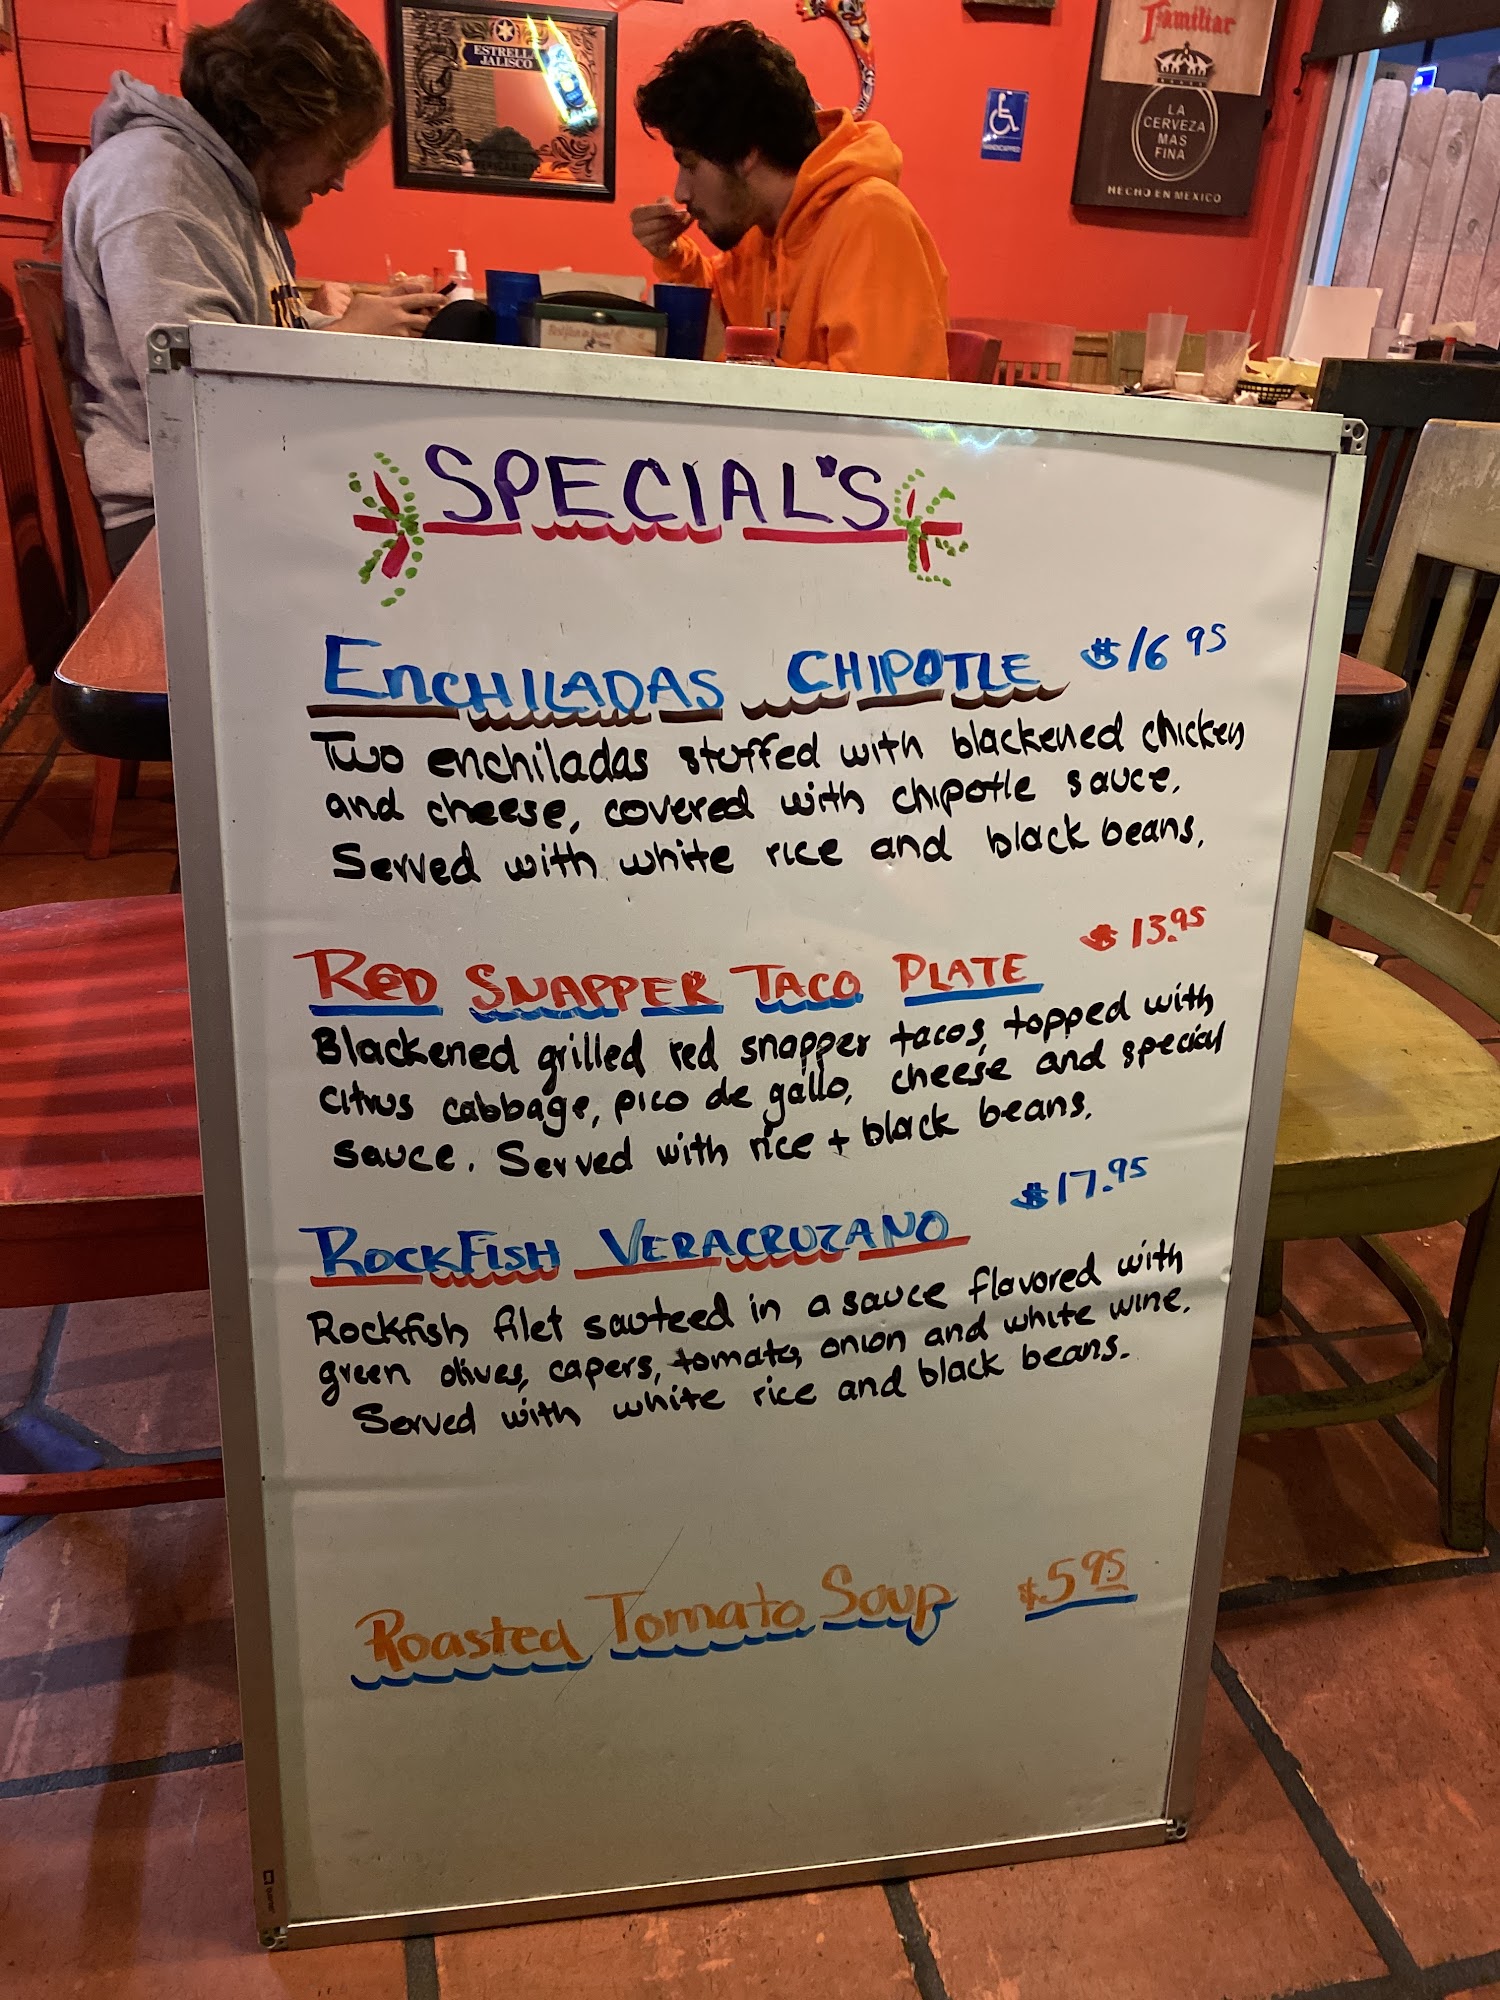 ESTRELLA
JALISCO
Familiar
LA
CERVEZA
MAS
FINA
HECHO EN MEXICO
HANDICAPPED
SPECIAL'S
ENCHILADAS CHIPOTLE $16 95
Two enchiladas stuffed with blackened chicken
and cheese, covered with chipotle sauce.
Served with white rice and black beans.
RED SNAPPER TACO PLATE $13.95
Blackened grilled red snapper tacos, topped with
citrus cabbage, pico de gallo, cheese and special
sauce. Served with rice + black beans.
ROCKFISH VERACRUZANO $17.95
Rockfish filet sauteed in a sauce flavored with
green olives, capers, tomato, onion and white wine.
Served with white rice and black beans.
Roasted Tomato Soup $5 95